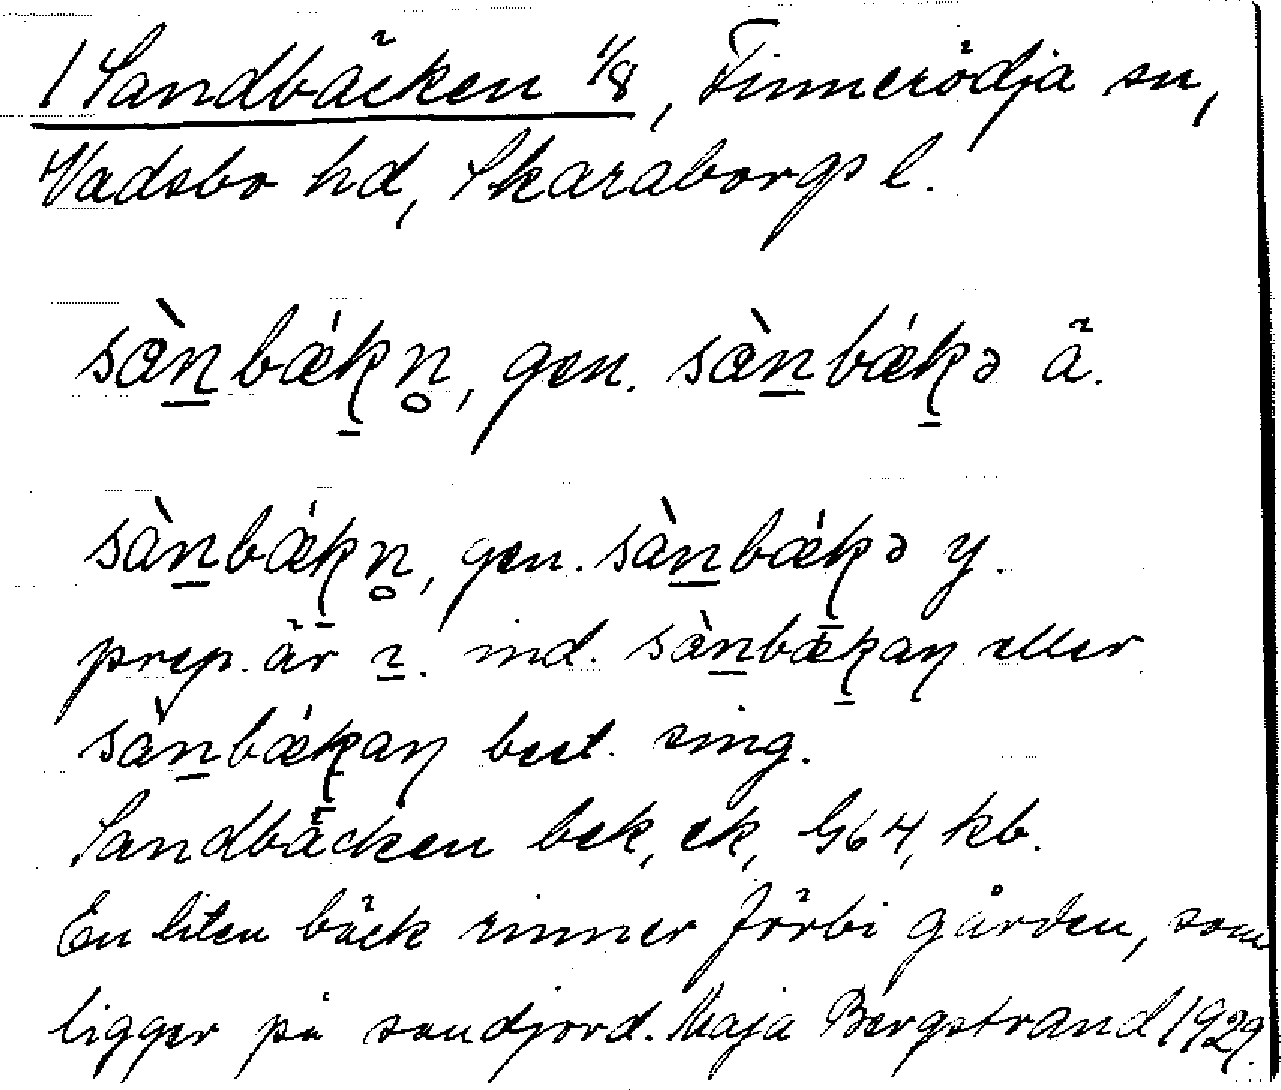 1 Sandbäcken 1/8, Finnerödja sn,
Vadsbo hd, Skaraborgs l.
sæ̀n̲bǽk̲n̥, gen. sæ̀n̲bǽk̲ə ä.
sàn̲bǽk̲n̥, gen. sàn̲bǽk̲ə y.
prep. är ɿ̲. ind. sàn̲bæk̲aŋ eller
sàn̲bǽk̲aŋ best. sing.
Sandbäcken bek, ek, G64, kb.
En liten bäck rinner förbi gården, som
ligger på sandjord. Maja Bergstrand 1929.